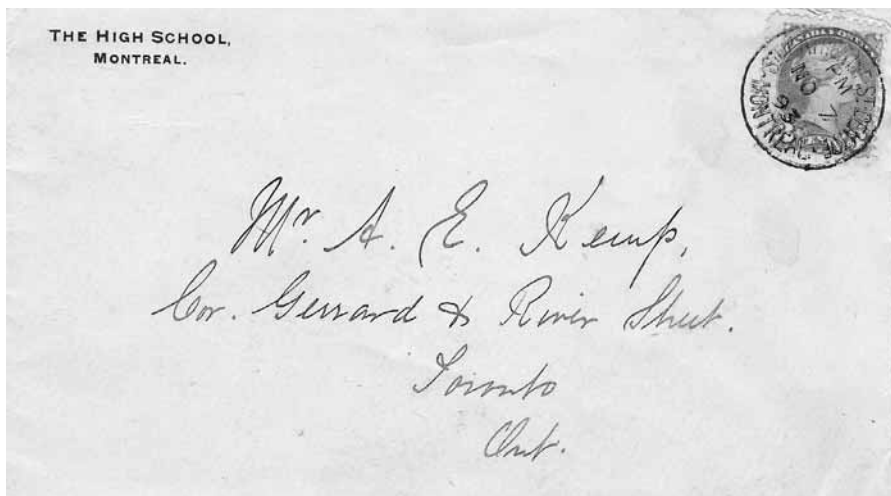 THE HIGH SCHOOL,
MONTREAL.
AM
NO 7
93
MONTREAL
Mr. A. E. Kemp,
Cor. Gerrard & River Street.
Toronto
Ont.